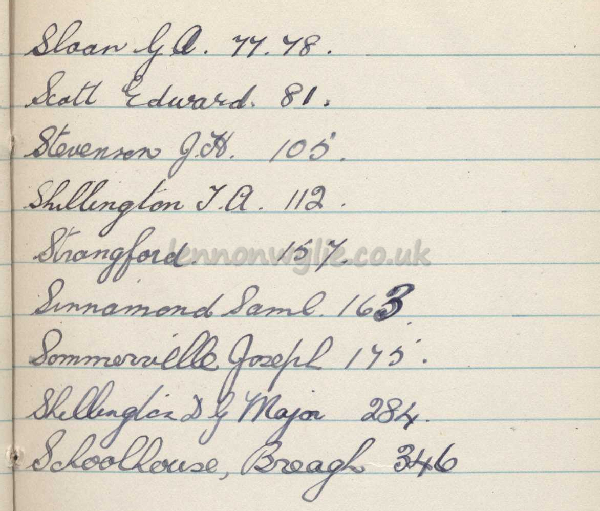 Sloan G A. 77. 78.
Scott Edward. 81.
Stevenson J. H. 105.
Shillington T. A. 112.
Strangford. 157
lennonwylie.co.uk
Sinnamond Saml. 163
Sommerville Joseph 175.
Shillington D G Major 284.
Schoolhouse, Breagh 346